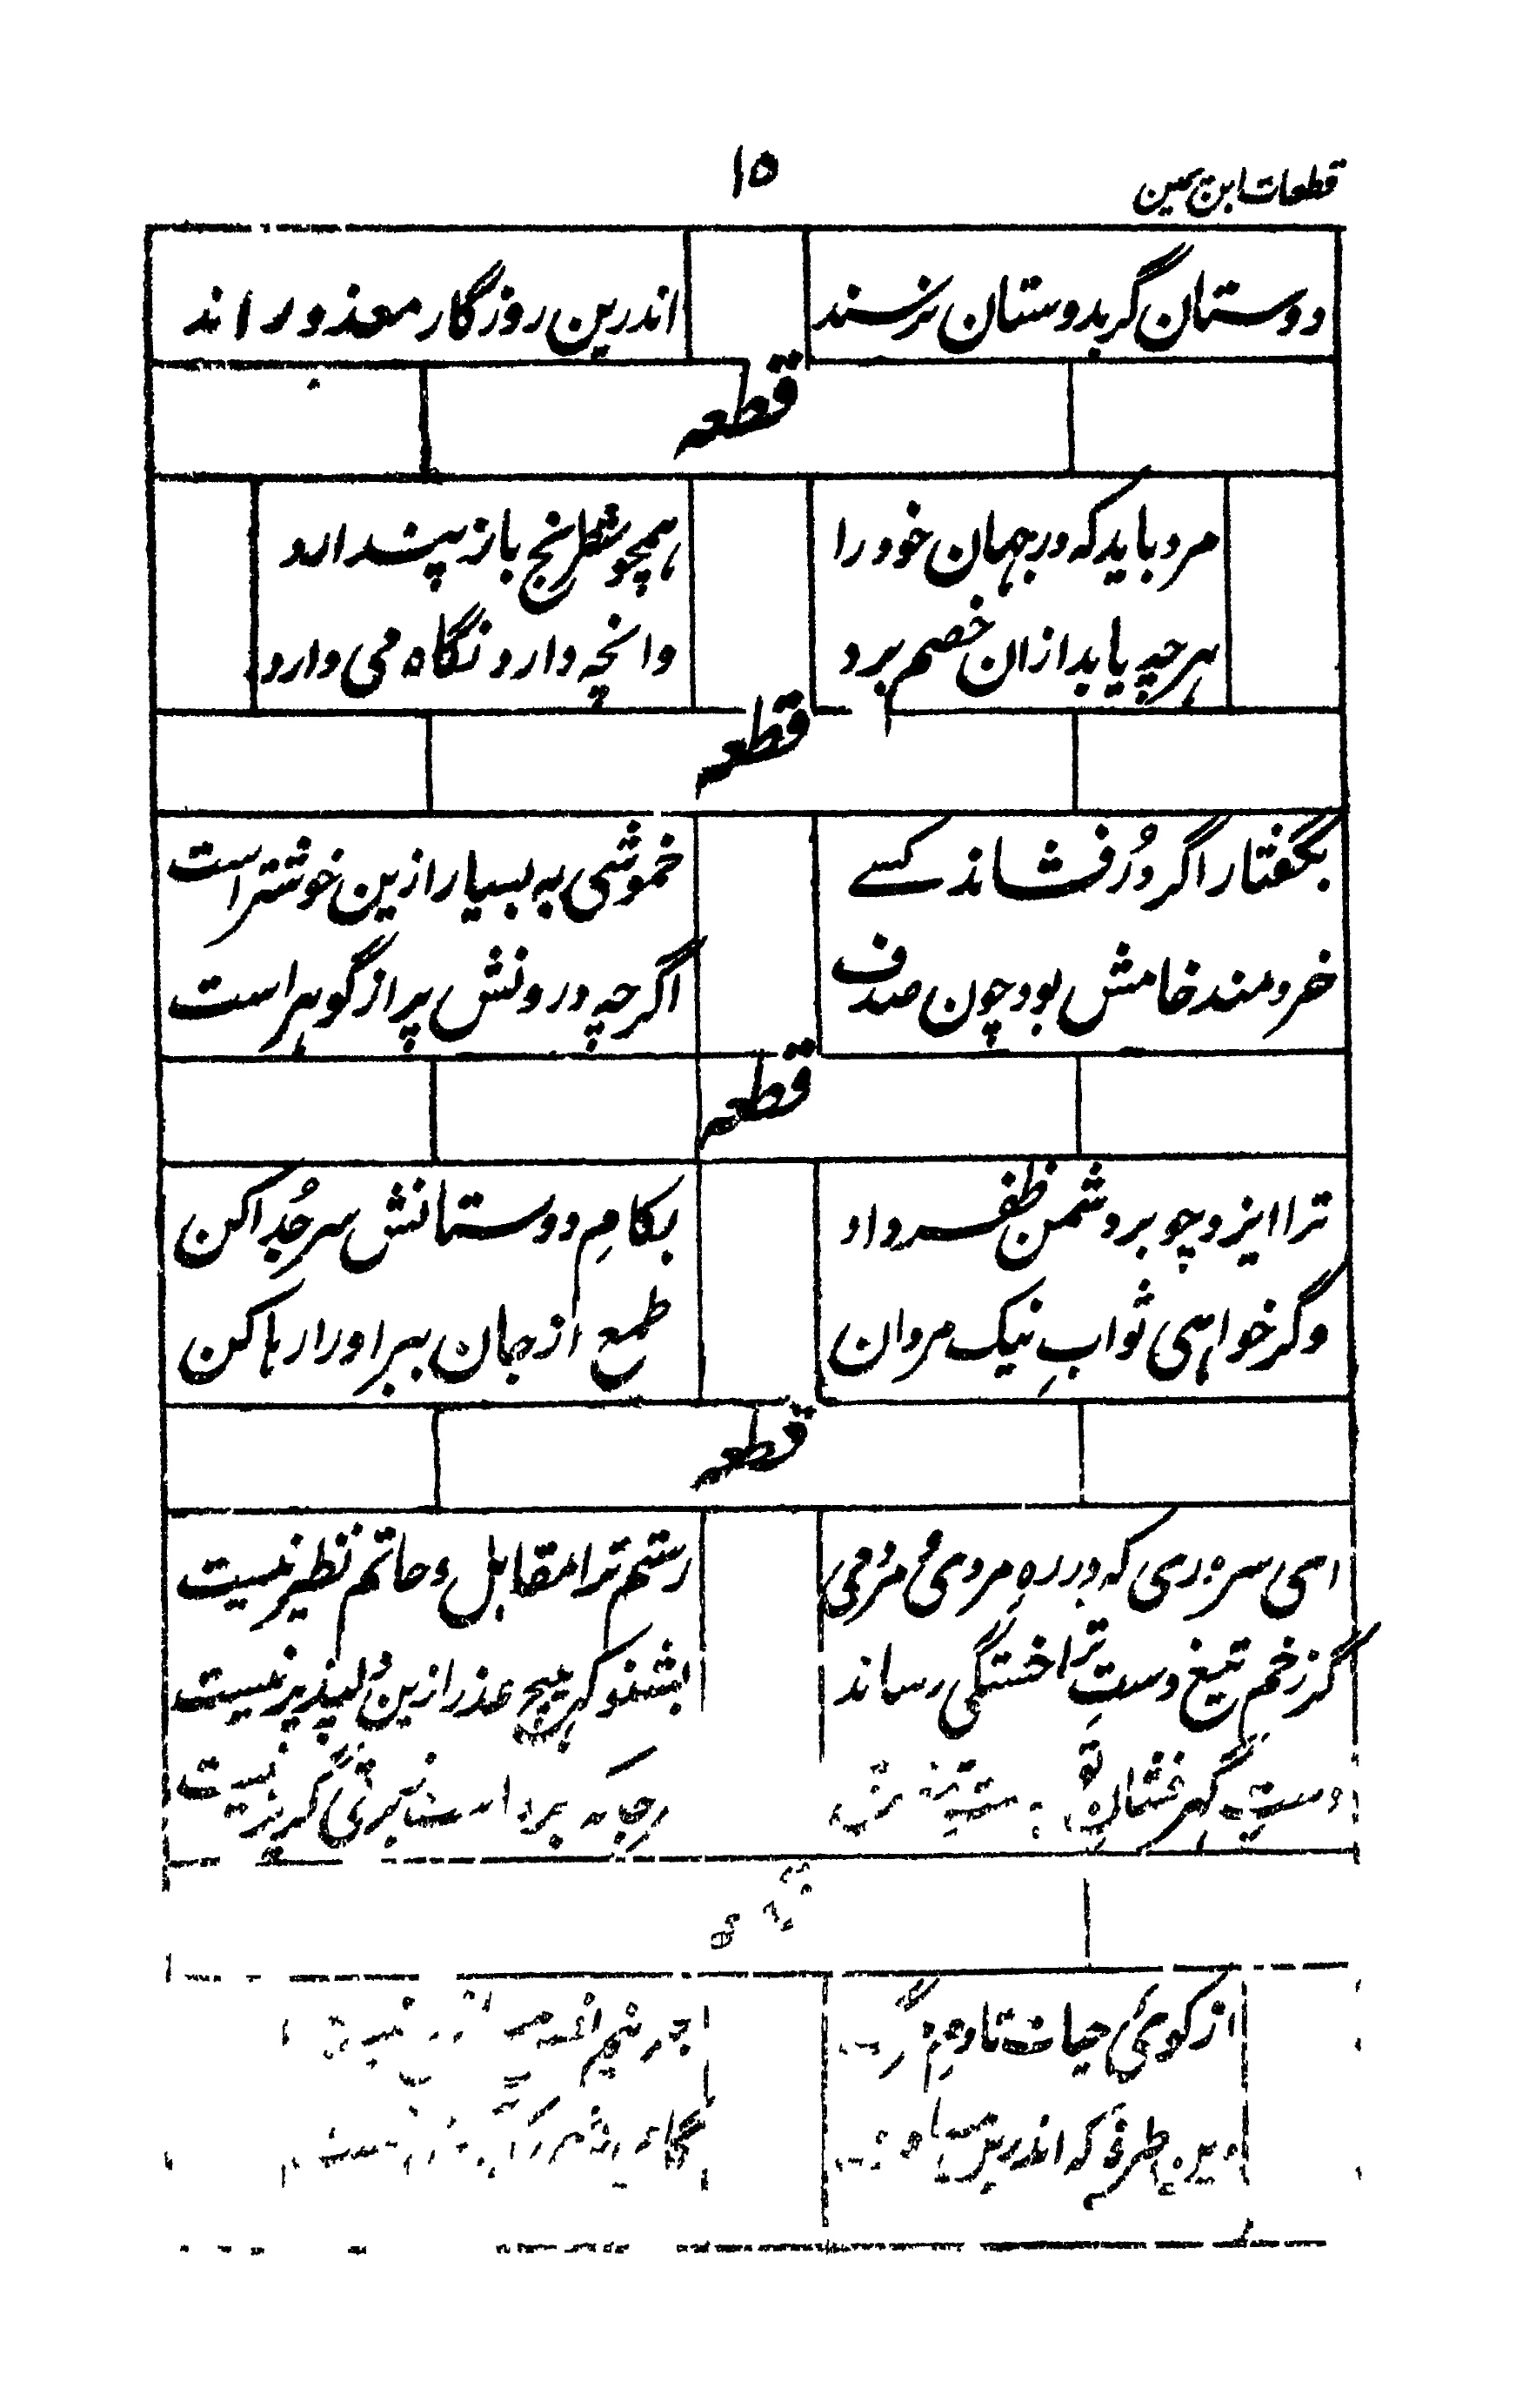 قطعات ابن یمین
۱۵
دوستان گر بدوستان نرسند اندرین روزگار معذور اند
قطعه
مرد باید که در جهان خود را همچو شطرنج باز پندارد
هرچه یابد ازان خصم برد وانچه دارد نگاه می دارد
قطعه
بگفتار اگر دُر فشاند کسے خموشی به بسیار ازین خوشتر است
خردمند خامش بود چون صدف اگرچه درونش پر از گوهر است
قطعه
ترا ایزد چو بر دشمن ظفر داد بکامِ دوستانش سر جُدا کن
وگر خواهی ثوابِ نیک مردان طمع از جان ببر او را رها کن
قطعه
ای سروری که در رهِ مردی و مردمی رستم ترا مقابل و حاتم نظیر نیست
گر زخم تیغ دستِ ترا خستگی رساند بشنو که هیچ عذر ازین دُلپذیر نیست
دستِ گهرفشانِ تو
از کوئ حیات تا در
وین طرفه که اندرین